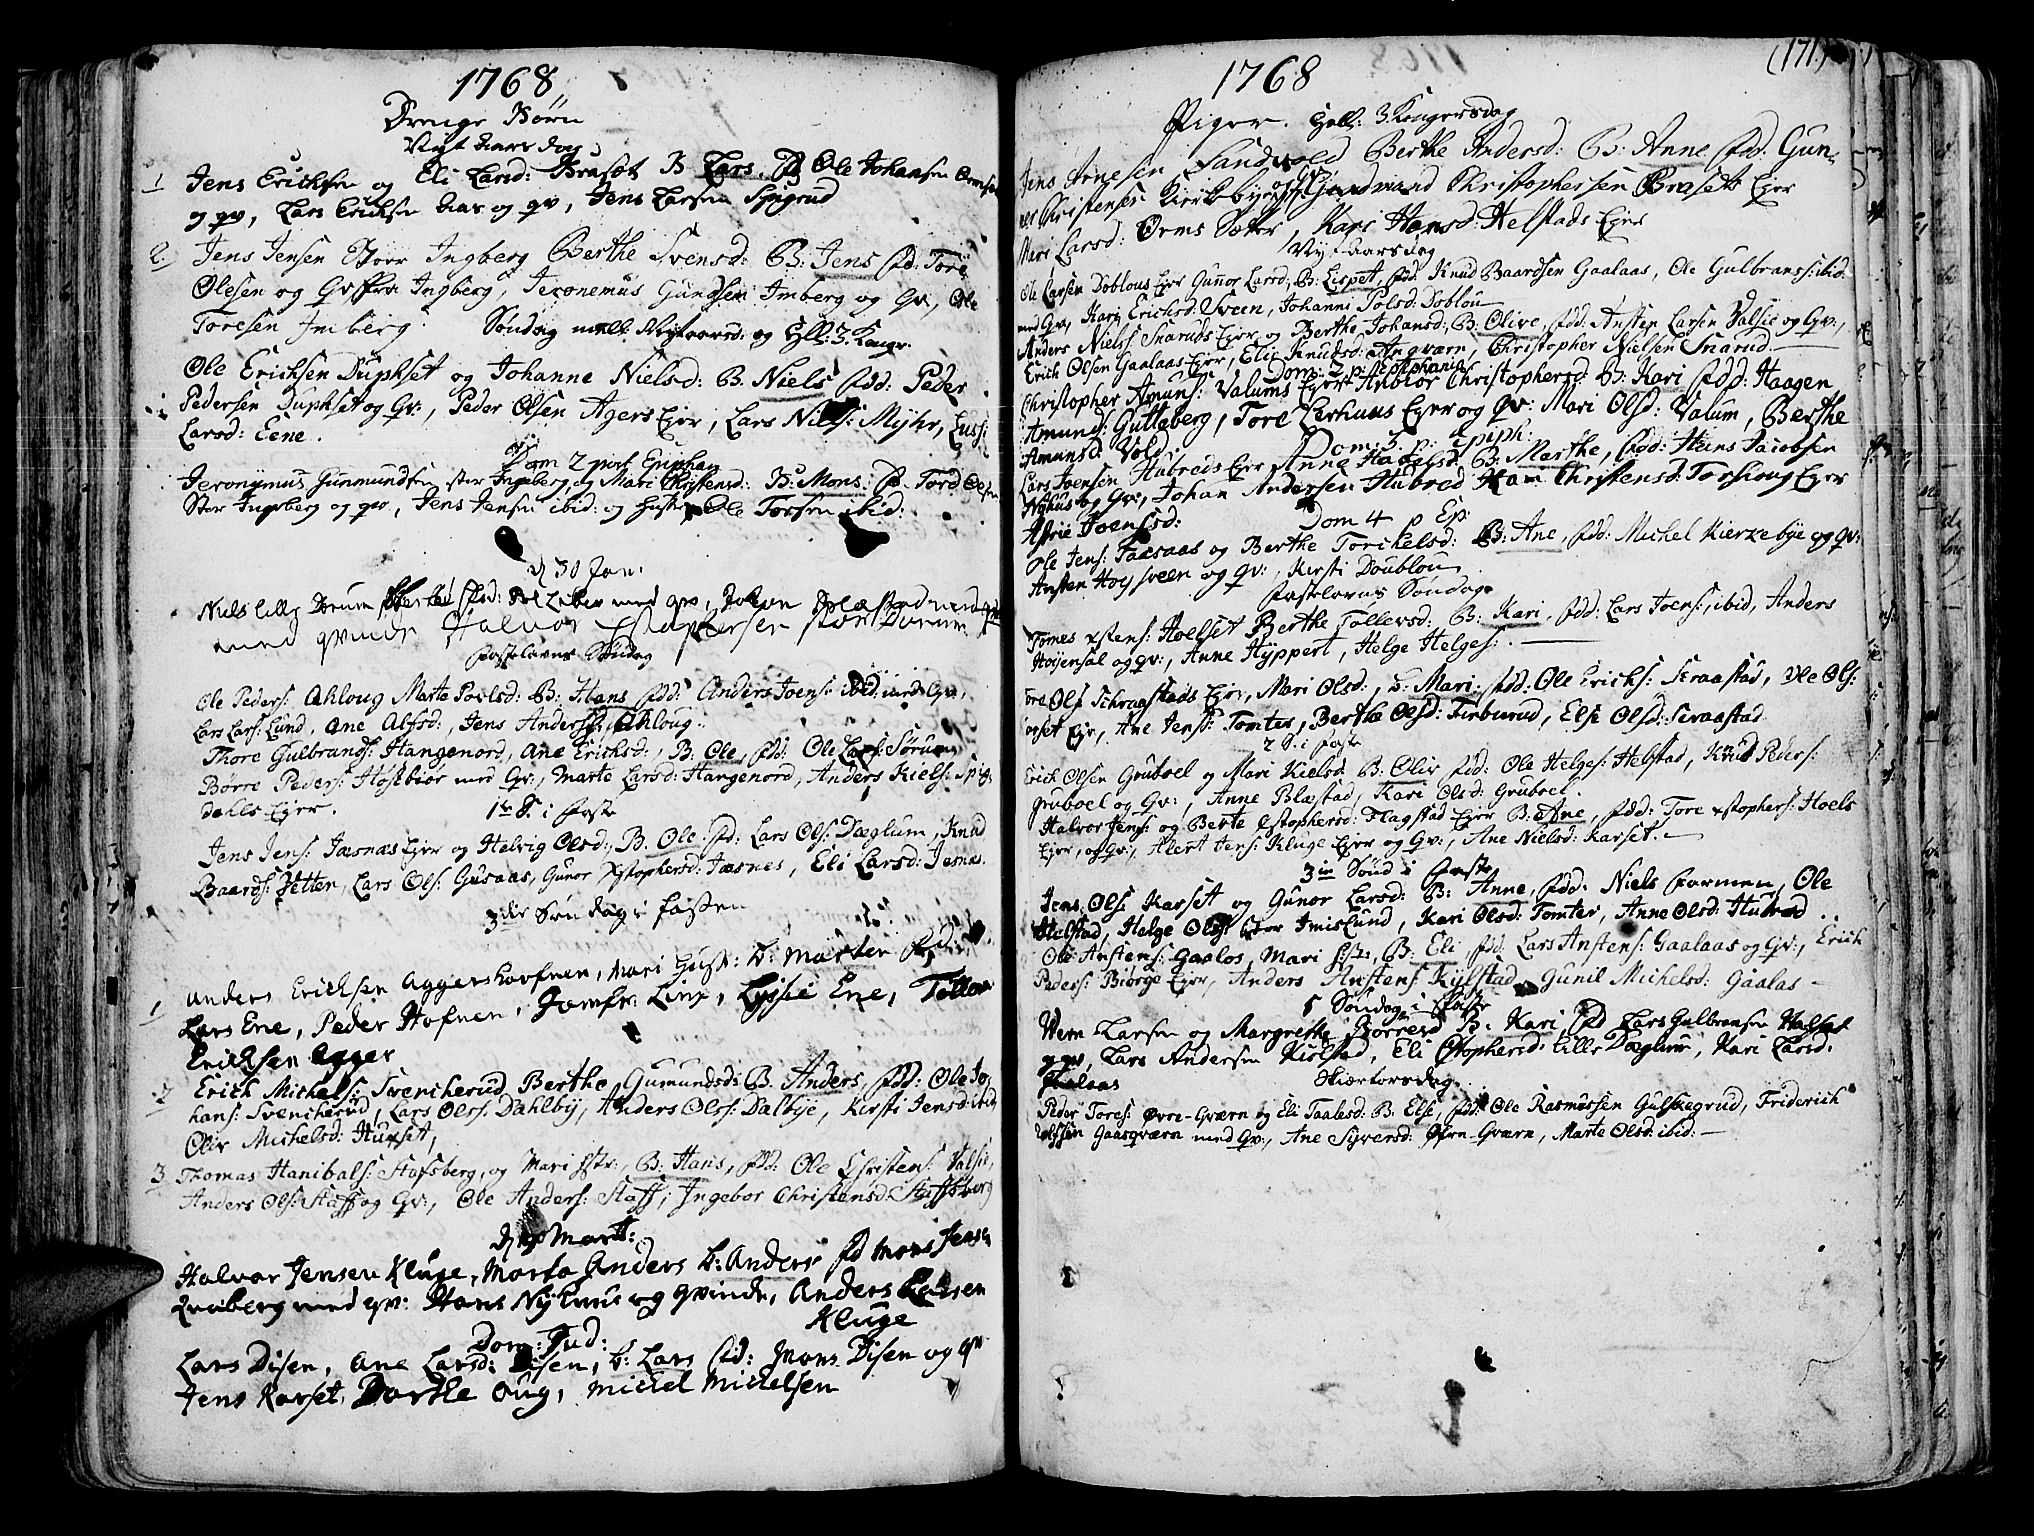 1768
Drenge Børn
Nyt Aars dag
1 Jens Ericksen og Eli Larsd: Brasæt B Lars. fd Ole Johansen Ormsæt
og qv, Lars Ericksen Aas og qv, Jens Larsen Skngrud
2. Jens Jensen Ingberg Berthe Svensd: B: Jens fd: Tore
Olesen og Qv fra Ingberg, Jeronemus Gundsen Imberg og Qv, Ole
Toresen Imberg. Søndag mell: Nytaarsd: og Hell: 3 Kongr.
Ole Ericksen Duphset og Johanne Nielsd: B. Niels fdd: Peder
Pedersen Duphset og Qv:, Peder Olsen Agers Ejer, Lars Niels: Myhr,
Larsd: Eene.
Dom 2 post Epiphan
Jeronymus Gunmundsen stor Ingeberg og Mari Christensd: B: Mons. fd. Tord Olsen
Stor Ingeberg og qv, Jens Jensen ibid: og Ole Torsen ibid:
d 30 Jan:
Niels lille Dorum med qv, Johan Blæstad med
med qvinde Halvor Christophersen stor Dorum
Fastelavns Søndag
Ole Peders: Ahloug Marte Povlsd: B: Hans fdd: Anders Joens: ibid: med Qv,
Lars Lars: Lund, Ane Alfsd:, Jens Anders: Ahloug.
Thore Gulbrands: Hangenord, Ane Ericksd:, B. Ole, fdd: Ole Lars: Sørum,
Børre Peders: Hosbiør med Qv:, Marte Larsd: Hangenord, Anders Kiels: Spig-
dahls Ejer.
1te S: i Faste
Jens Jens: Jæsnæs Ejer og Helvig Olsd:, B. Ole fd: Lars Ols: Dæglum, Knud
Baards: Zetten, Lars Ols: Gusaas, Gunor Xstophersd: Jæsnes, Eli Larsd: Jesnæs.
3die Søndag i fasten
1 Anders Ericksen Aggershafnen, Mari Hust: b: Morten fd:
Lars Ene, Peder Hofnen, Jomfr: Linr, Lyssie Ene, Tollev
Ericksen Agger
2 Erich Michels: Svencherud Berthe Gumundsd: B. Anders, fdd: Ole Jo-
hans: Svencherud, Lars Olss: Dahlby, Anders Olss: Dalbye, Kirsti Jensd: ibid
Oliv Michelsd: Hurset,
3 Thomas Hanibals: Stafsberg, og Mari Hstr:, B: Hans, fdd: Ole Christens: Valsie,
Anders Ols: Staff og Qv:, Ole Anders: Staff, Ingebor Christensd: Staffsberg
d Mart:
Halvor Jensen Kluge, Marta Anders b: Anders fd Mons Jensen
med qv: Hans Nyhuus og qvinde, Anders Larsen
Kluge
Dom: Jud:
Lars Disen, Ane Larsd: Disen, b: Lars fd: Mons Disen og qv
Jens Karset, Dorthe Oug, Michel Michelsen
1768
(171)
Piger. Hell: 3 Kongersdag
Jens Arnesen Sandvold Berthe Andersd: B: Anne fdd: Gun-
ner Kristensen Kierkebye og qv, Gundvand Christophersen Braset Ejer
Mari Larsd: Orms Sæter, Kari Hansd: Helstads Ejer
Nyt Aarsdag
Ole Larsen Doblous Ejer Gunor Larsd, B: Lispet, fdd Knud Baardsen Gaalaas, Ole Gulbrans: ibid:
med Qv, Kari Ericksd: Sveen, Johanne Polsd: Doblou
Anders Niels: Snaruds Ejer og Berthe Johansd: B: Olive, fdd: Ansten Larsen Valsie og Qv:,
Erich Olsen Gaalaas Ejer, Eli Knudsd: Angværn, Christopher Nielsen Snarud
Dom: 2 p: Epiphania
Christopher Amuns: Valums Ejer Anbior Christophersd B: Kari fdd: Haagen
Amunds: Gutteberg, Tore Zerhuus Ejer og qv: Mari Olsd: Valum, Berthe
Amunsd: Vold. Dom: 3 p: Epiph:
Lars Joensen Hubreds Ejer Anne Hagelsd: B: Marthe, fdd: Hans Jacobsen
Nyhus og Qv:, Johan Andersen Hubred, Christensd: Torshoug Ejer
Aprie Joensd:
Dom 4 p Ep:
Ole Jens: Taxsaas og Berthe Torchelsd: B: Ane, fdd: Michel Kierkebye og qv:
Ansten Hoysveen og qv:, Kirsti Doublou
Fastelavns Søndag
Tomes Xstens: Hoelset Berthe Tollevsd: B: Kari, fdd: Lars Joens: ibid, Anders
Hoyensal og qv:, Anne Hyppert, Helge Helges:
Tore Ols: Schraastads Ejer, Mari Olsd:, B: Mari, fdd: Ole Erichs: Skraastad, Ole Ols:
Ejer, Ane Jens: Tomter, Berthe Olsd: Firburud, Else Olsd: Skraastad
2 S: i Faste
Erich Olsen Gruboel og Mari Kielsd: B: Oliv fdd: Ole Helges: Helstad, Knud Peders:
gruboel og Qv:, Anne Blæstad, Kari Olsd: Gruboel.
Halvor Jens: og Berte Xstophersd: Flagstad Ejer B: Ane, fdd: Tore Xstophers: Hoels
Ejer, og Qv:, Alert Jens: Kluge Ejer og Qv:, Ane Nielsd: Karset.
3die Sønd i Faste
Jens Ols: Karset og Gunor Larsd: B: Anne, fdd: Niels Farmen, Ole
Helstad, Helge Ols: Stor Imislund, Kari Olsd: Tomter, Anne Olsd: Hubred
Ole Anstens: Gaalos, Mari Hstr:, B: Eli, fdd: Lars Anstens: Gaalaas og Qv:, Erich
Peders: Biørge Ejer, Anders Anstens: Kylstad, Gunil Michelsd: Gaalas
5 Søndag i Faste
Wern Larsen og Margrethe Børresd B: Kari fd Lars Gulbransen Halset
og qv, Lars Andersen Kielstad, Eli Xstophersd: Lille Dæglum, Kari Larsd:
Galaas Skiærtorsdag
Peder Tores: Øvre-Gværn og Eli Taalesd: B: Else, fdd: Ole Rasmussen Gulskegrud, Friderich
Gaasqværn med Qv:, Ane Syversd: Øfre-Gværn, Marte Olsd: ibid: